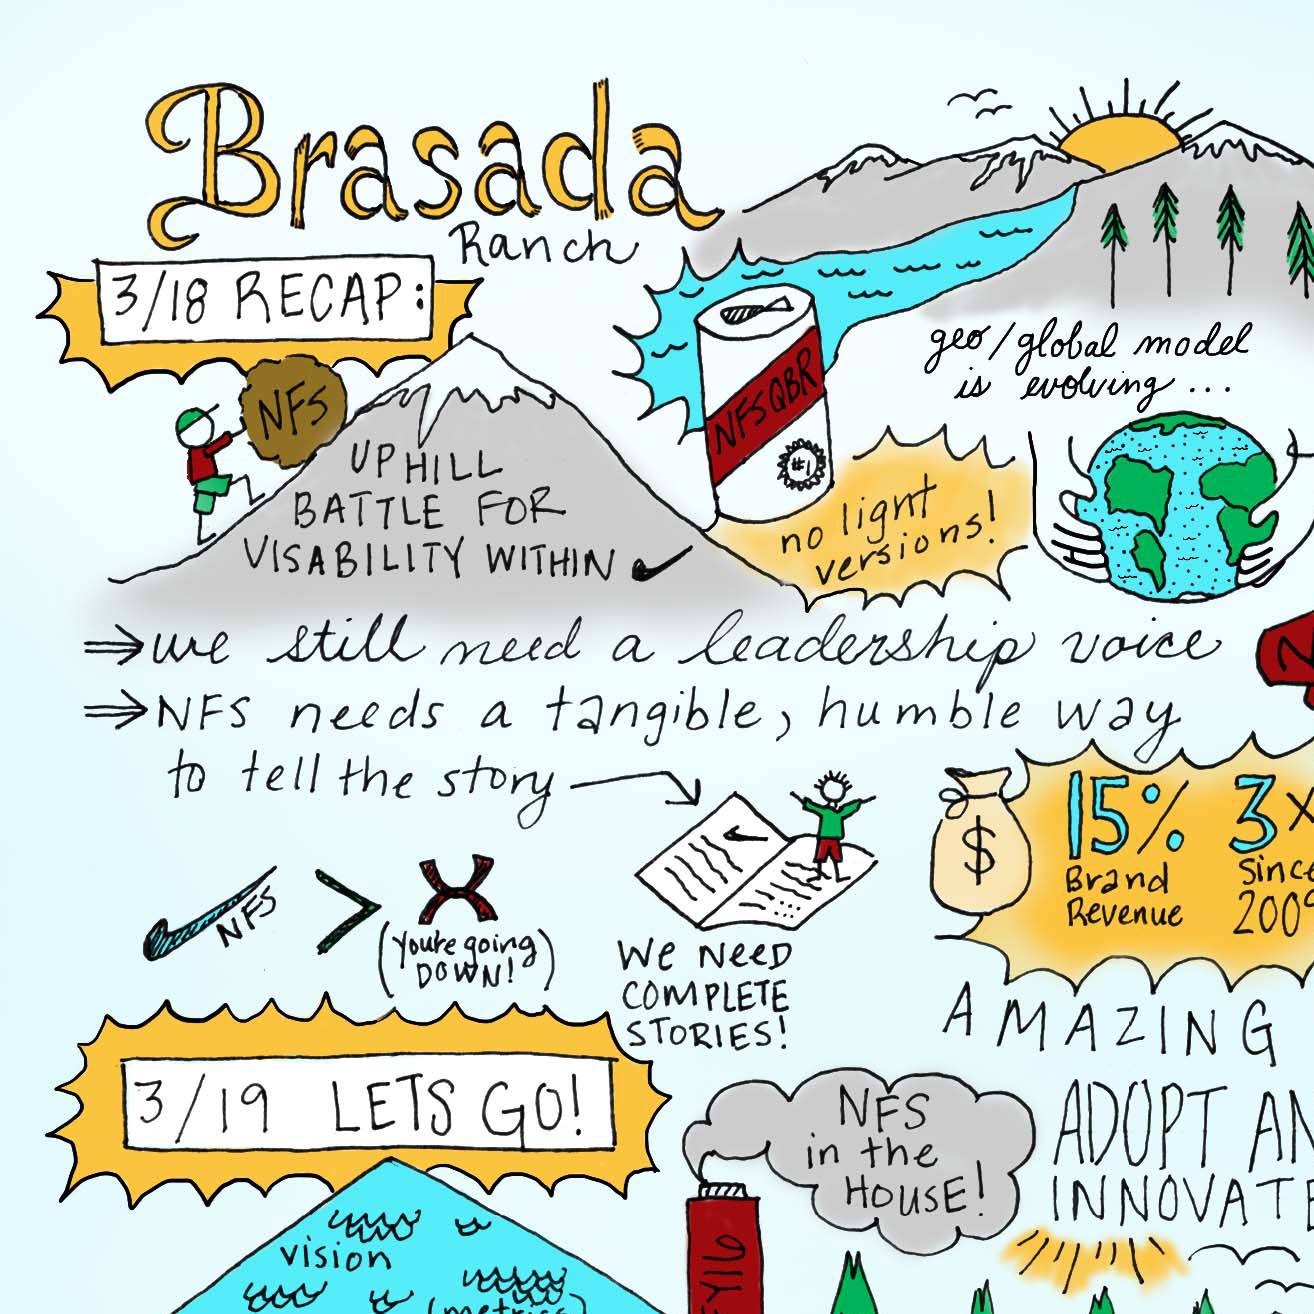 Brasada
Ranch
3/18 RECAP:
NFS
UPHILL
BATTLE FOR
VISABILITY WITHIN
NFSQBR
#1
no light
versions!
geo/global model
is evolving ...
⇒ we still need a leadership voice
⇒ NFS needs a tangible, humble way
to tell the story
NFS
(You're going
DOWN!)
WE NEED
COMPLETE
STORIES!
$
15%
Brand
Revenue
3x
Since
2009
AMAZING
3/19 LETS GO!
vision
(metrics)
NFS
in the
HOUSE!
FY16
ADOPT
INNOVATE